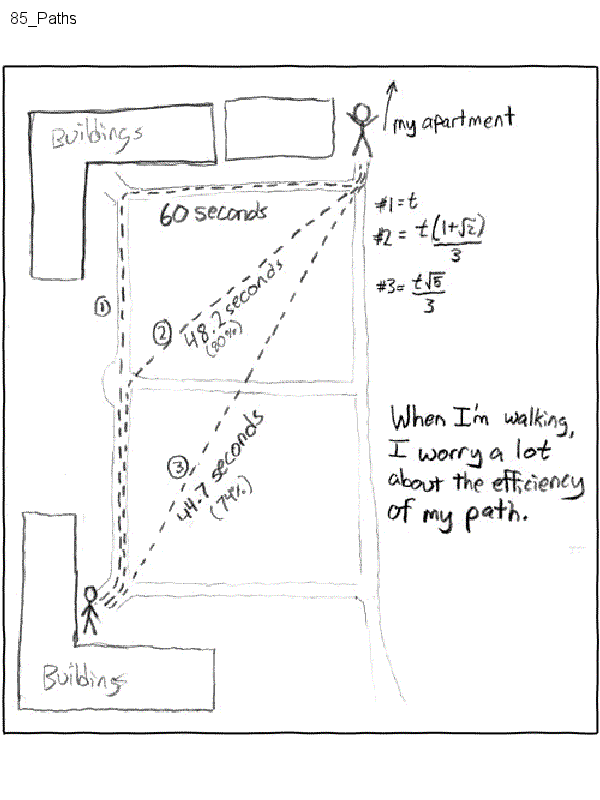 85_Paths
Buildings
my apartment
60 seconds
#1 = t
#2 = t(1+√2)/3
#3 = t√5/3
①
② 48.2 seconds
(80%)
③ 44.7 seconds
(74%)
When I'm walking,
I worry a lot
about the efficiency
of my path.
Buildings